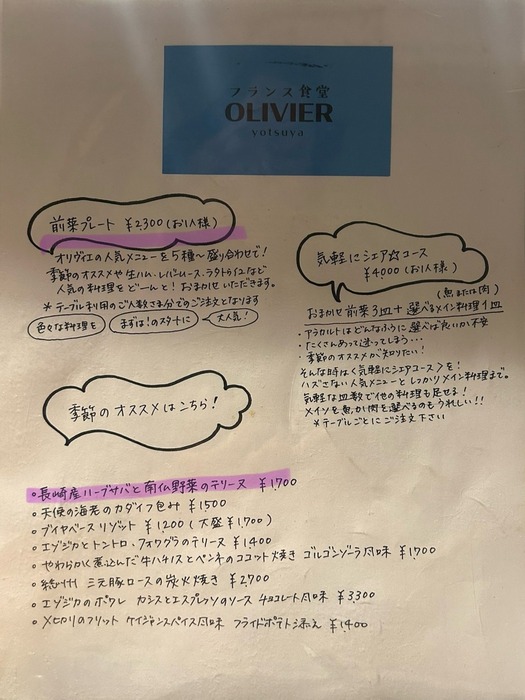 フランス食堂
OLIVIER
yotsuya
前菜プレート ¥2300(お1人様)
オリヴィエの人気メニューを5種〜盛り合わせで!
季節のオススメや生ハム、レバームース、ラタトゥイユなど
人気の料理をどーんと!おまかせいただきます。
*テーブル利用のご人数さま分でのご注文となります
色々な料理を
まずは!のスタートに
大人気!
気軽にシェア☆コース
¥4000(お1人様)
(魚または肉)
おまかせ前菜3皿+選べるメイン料理1皿
・アラカルトはどんなふうに選べば良いか不安
・たくさんあって迷ってしまう・・・
・季節のオススメが知りたい!
そんな時は<気軽にシェアコース>を!
ハズさない人気メニューとしっかりメイン料理まで。
気軽な皿数で他の料理も足せる!
メインを魚か肉を選べるのもうれしい!!
*テーブルごとにご注文下さい
季節のオススメはこちら!
○長崎産ハーブサバと南仏野菜のテリーヌ ¥1,700
○天使の海老のカダイフ包み ¥1500
○ブイヤベースリゾット ¥1200(大盛¥1,700)
○エゾジカとトントロ、フォワグラのテリーヌ ¥1,400
○やわらかく煮込んだ牛ハチノスとペンネのココット焼き ゴルゴンゾーラ風味 ¥1,700
○ 三元豚ロースの炭火焼き ¥2,700
○エゾジカのポワレ カシスとエスプレッソのソース チョコレート風味 ¥3,300
○メヒカリのフリット ケイジャンスパイス風味 フライドポテト添え ¥1,400